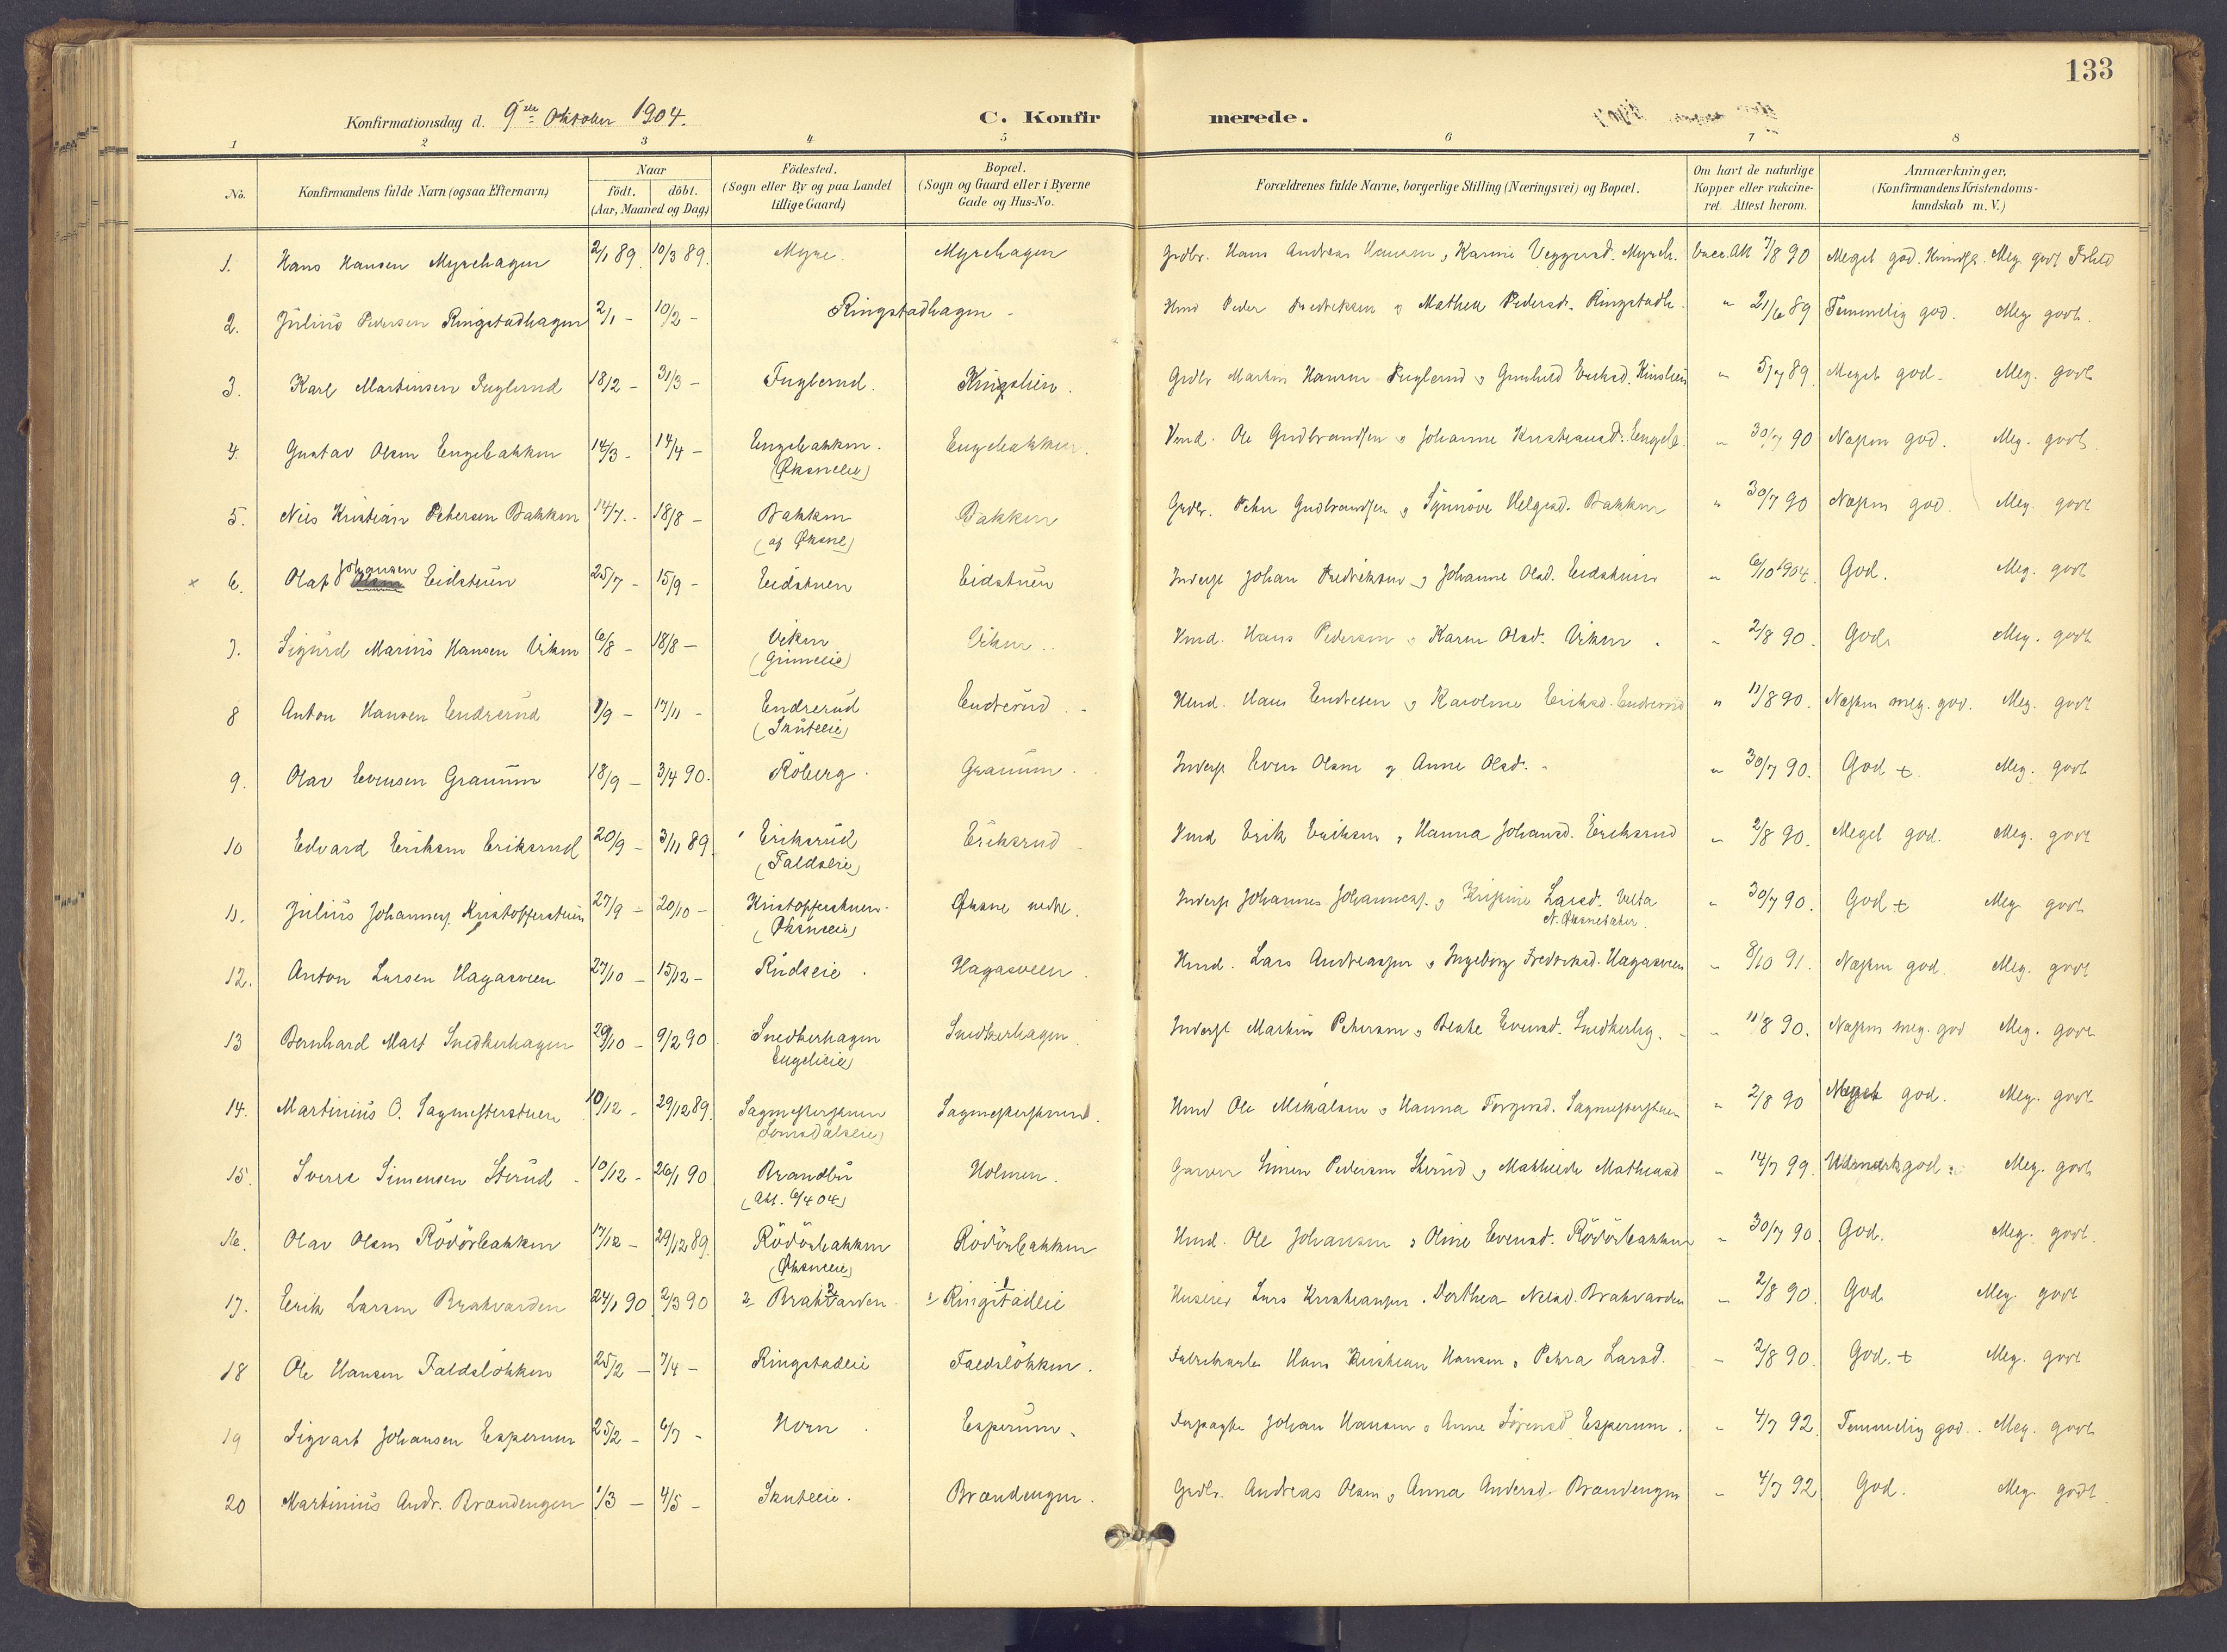 133
Konfirmationsdag d. 9de Oktober 1904.
C. Konfirmerede.
1 2 3 4 5 6 7 8
No.
Konfirmandens fulde Navn (ogsaa Efternavn)
Naar
födt. döbt.
(Aar, Maaned og Dag)
Födested.
(Sogn eller By og paa Landet
tillige Gaard)
Bopæl.
(Sogn og Gaard eller i Byerne
Gade og Hus-No.
Forældrenes fulde Navne, borgerlige Stilling (Næringsvei) og Bopæl.
Om havt de naturlige
Kopper eller vakcine-
ret. Attest herom.
Anmærkninger,
(Konfirmandens Kristendoms-
kundskab m. V.)
1. Hans Hansen Myrehagen 2/1 89. 10/3 89. Myre. Myrehagen Grdbr. Hans Andreas Hansen, Karine Veggersd. Myreh. Vacc. Att 7/8 90 Meget god. Meg. godt Forhld
2. Julius Pedersen Ringstadhagen 2/1 - 10/2 - Ringstadhagen - Hmd Peder Fredriksen og Mathea Pedersd. Ringstadh. " 21/6 89 Temmelig god. Meg godt.
3. Karl Martinsen Fuglerud 18/2 - 31/3 - Fuglerud. Kinglien. Grdbr Martin Hansen Fuglerud og Gunhild 5/7 89. Meget god. Meg. godt
4. Gustav Olsen Engebakken 14/3 - 14/4 - Engebakken. Engebakken. Hmd. Ole Gudbrandsen og Johanne Kristiansd. Engeb. " 30/7 90 Næsten god. Meg. godt
(Øksneeie)
5. Nils Kristian Petersen Bakken 14/7. - 18/8 - Bakken Bakken Grdbr. Peter Gudbrandsen og Synnöve Helgesd. Bakken " 30/7 90 Næsten god. Meg. godt
(af Øksne)
x 6. Olaf Johansen Eidstuen 25/7 - 15/9 - Eidstuen Eidstuen Inderst Johan Fredriksen og Johanne Olsd. Eidstuen " 6/10 1904. God. Meg. godt
7. Sigurd Marius Hansen Viken 6/8 - 18/8 - Viken Viken. Hmd. Hans Pedersen og Karen Olsd. Viken. " 2/8 90. God. Meg. godt
(Grimeeie)
8 Anton Hansen Endrerud 8/9 - 17/11 - Endrerud Endrerud. Hmd. Hans Endresen og Karoline Eriksd. Endrerud " 11/8 90. Næsten meg. god. Meg. godt
(Skuteeie)
9. Olav Evensen Granum 18/9 - 3/4 90. Röberg. Granum. Inderst Even Olsen og Anne Olsd. " 30/7 90. God + Meg. godt
10 Edvard Eriksen Eriksrud 20/9 - 3/11 89. Eriksrud Eriksrud Hmd Erik Eriksen, Hanna Johansd. Eriksrud " 2/8 90. Meget god. Meg. godt
(Faldseie)
11. Julius Johannes. Kristofferstuen 27/9 - 20/10 - Kristofferstuen Øksne nedre. Inderst Johannes Johannes. og Kristine Larsd. " 30/7 90. God + Meg godt
(Øksneeie)
12. Anton Larsen Hagasveen 27/10 - 15/12 - Rudseie. Hagasveen. Hmd. Lars Andreassen og Ingeborg Fredriksd. Hagasveen " 8/10 91. Næsten god. Meg. godt
13 Bernhard Mart Snedkerhagen 29/10 - 9/2 90. Snedkerhagen Snedkerhagen. Inderst Martin Petersen og Beate Evensd. Snedkerhg. " 11/8 90. Næsten meg. god Meg. godt
Engeleie)
14. Martinius O. Sagmesterstuen 10/12 - 29/12 89. Sagmesterstuen Sagmesterstuen. Hmd Ole Mikalsen og Hanna Torgersd. Sagmesterstuen " 2/8 90 Meget god. Meg. godt
(Lomsdalseie)
15. Sverre Simensen Sterud 10/12 - 26/1 90 Brandbu Holmen. Garver Simen Pedersen Sterud og Mathilde Mathiasd " 14/7 99. Udmærk god. Meg. godt
(Att. 6/4 04)
16. Olav Olsen Rödösbakken 17/12 - 29/12 89. Rödösbakken Rödösbakken Hmd. Ole Johansen og Oline Evensd. Rödösbakken " 30/7 90. God. Meg. godt.
(Øksneeie)
17. Erik Larsen Brakvarden 24/1 90 2/3 90 2 Brakvarden. Ringstadeie Huseier Lars Kristiansen. Dorthea Nilsd. Brakvarden " 2/8 90. God. Meg. godt
18 Ole Hansen Faldslökken 25/2 - 7/4 - Ringstadeie Faldslökken. Fabrikarb. Hans Kristian Hansen, Petra Larsd. " 2/8 90. God. + Meg. godt
19 Sigvart Johansen Esperum 25/2 - 6/7 - Horn Esperum. Forpagter Johan Hansen og Anne Sörensd Esperum. " 4/7 92. Temmelig god. Meg. godt
20 Martinius Andr. Brændengen 1/3 - 4/5 - Skuteeie. Brændengen. Grdbr. Andreas Olsen og Anna Andersd. Brændengen " 4/7 92 God. Meg. godt.